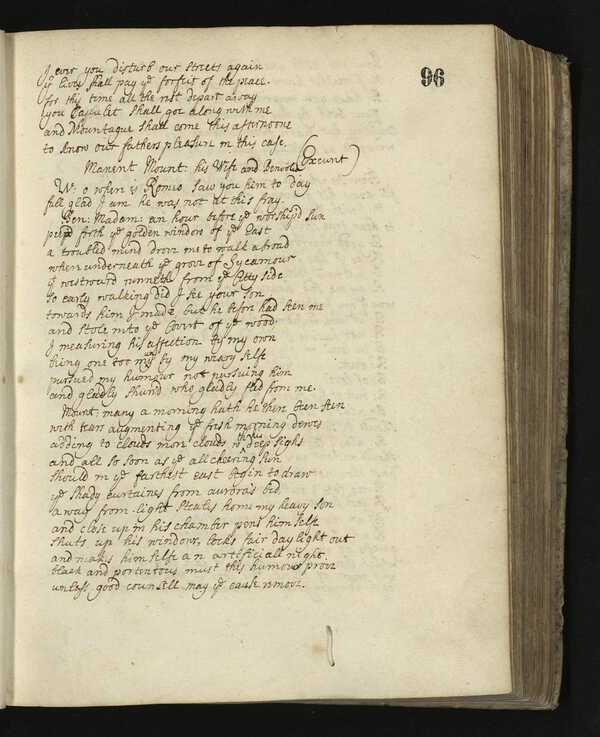 96
If ever you disturb our streets again
yr lives shall pay ye forfeit of the peace.
for this time all the rest depart away
you Capulet shall goe along with me
and Mountague shall come this afternoone
to know our fathers pleasure in this case.
(Exeunt)
Manent Mount: his Wife and Benvolio
W: o where is Romeo saw you him to day
full glad I am he was not at this fray.
Ben: Madam: an hour before ye worship'd sun
peep'd forth ye golden window of ye East
a troubled mind drove me to walk abroad
where underneath ye grove of Sycamour
yt westward runneth from ye Citty side
so early walking did I see your son
towards him I made, but he before had seen me
and stole into ye Covert of ye wood.
I measuring his affection by my own
being one too many by my weary self
pursued my humour not pursuing him
and gladly shund who gladly fled from me.
Mount: many a morning hath he then been seen
with tears augmenting ye fresh morning dewes
adding to clouds more clouds wth his deep sighs
and all so soon as ye all cheering Sun
should in ye farthest east begin to draw
ye shady curtaines from aurora's bed
away from light steales home my heavy son
and close up in his chamber pens himselfe
shuts up his windows, locks fair daylight out
and makes himselfe an artificiall night.
black and portentous must this humour prove
unless good counsell may ye cause remove.